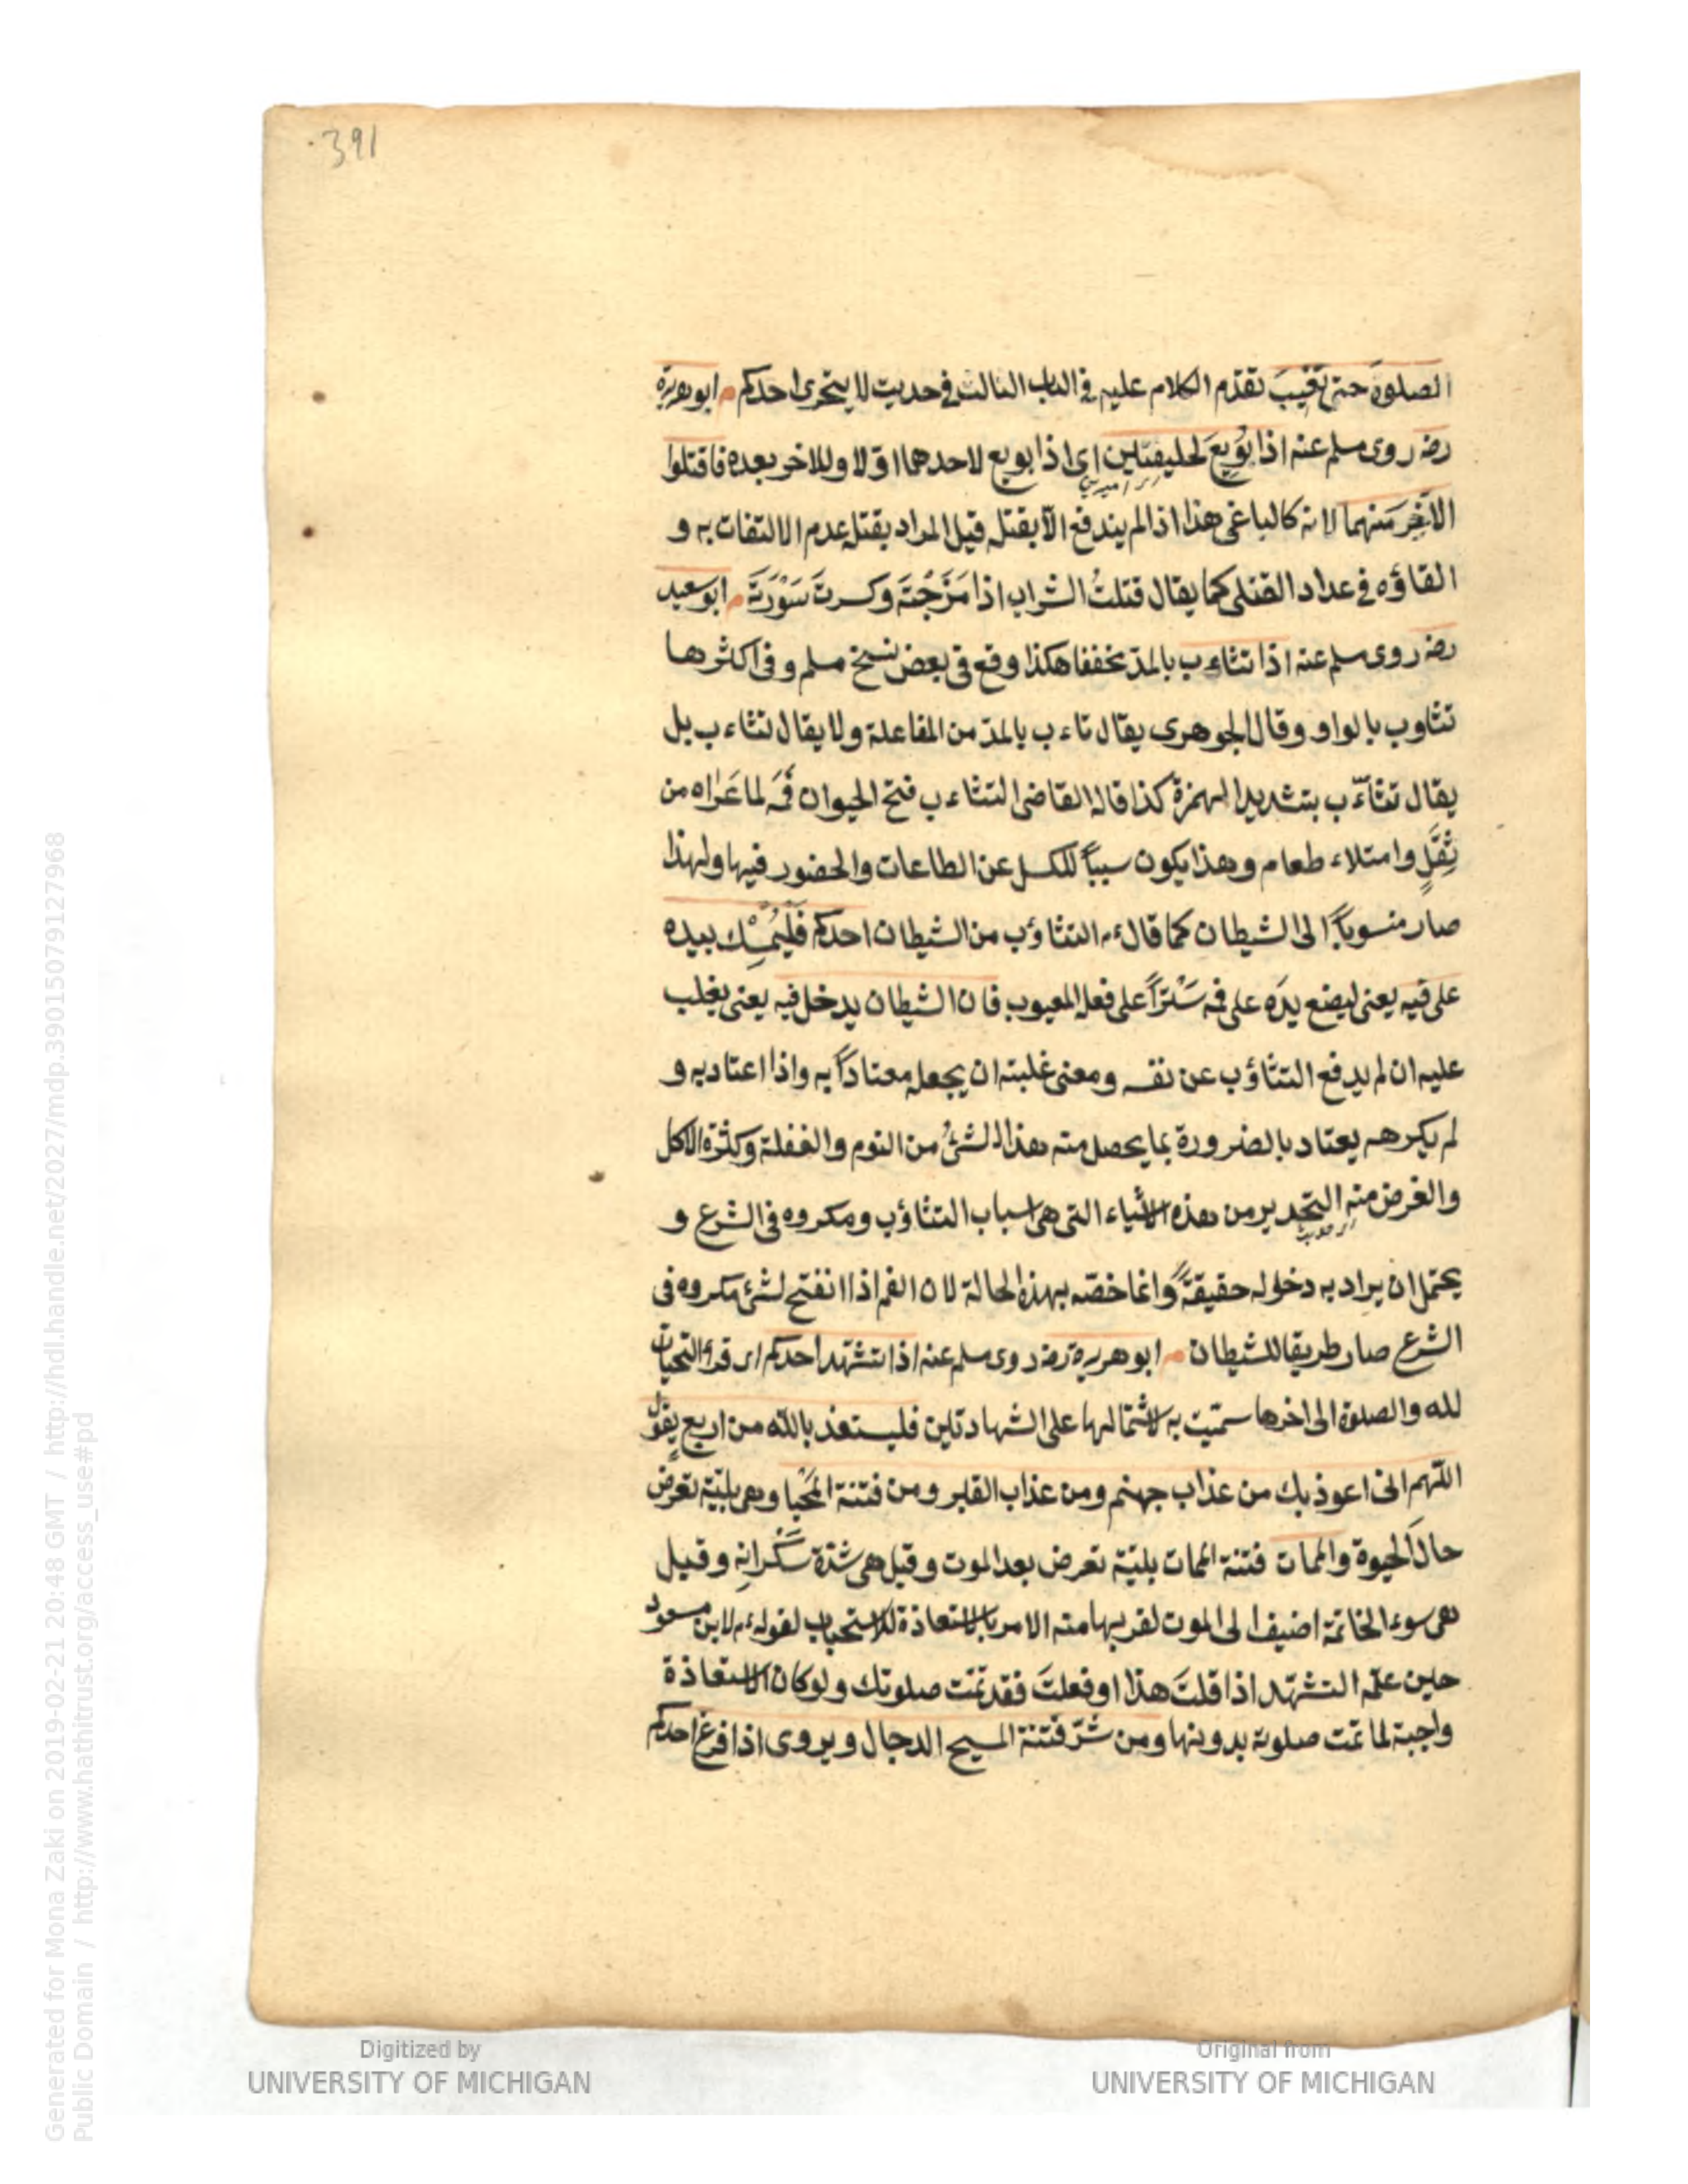 391
الصلوة حتى تغيب تقدم الكلام عليه في الباب الثالث في حديث لا يتحرى احدكم م ابو هريرة
رضـ روى مسلم عنه اذا بُويِعَ لخليفتين اى اذا بويع لاحدهما اوّلا وللاخر بعده فاقتلوا
الآخِرَ منهما لانه كالباغى هذا اذا لم يندفع الّا بقتله قيل المراد بقتله عدم الالتفات به و
القاؤه في عداد القتلى كما يقال قتلتُ الشراب اذا مَزَجْتَه وكسرتَ سَوْرَتَه م ابو سعيد
رضـ روى مسلم عنه اذا تثاءب بالمدّ مخففا هكذا وقع في بعض نسخ مسلم وفى اكثرها
تثاوب بالواو وقال الجوهرى يقال ثاءب بالمدّ من المفاعلة ولا يقال تثاءب بل
يقال تثأّب بتشديد الهمزة كذا قاله القاضى التثاءب فتح الحيوان فَمَه لما عَراه من
ثِقَلٍ وامتلاء طعام وهذا يكون سبباً للكسل عن الطاعات والحضور فيها ولهذا
صار منسوباً الى الشيطان كما قالءم التثاؤب من الشيطان احدكم فَلْيُمْسِك بيده
على فيه يعنى ليضع يدَه على فمه سَتْراً على فعله المعيوب فان الشيطان يدخل فيه يعنى يغلب
عليه ان لم يدفع التثاؤب عن نفسه ومعنى غلبته ان يجعله معتاداً به واذا اعتاد به و
لم يكرهه يعتاد بالضرورة بما يحصل منه هذا الشئ من النوم والغفلة وكثرة الاكل
والغرض منه التحذير من هذه الاشياء التى هى اسباب التثاؤب ومكروه فى الشرع و
يحتمل ان يراد به دخوله حقيقةً وانما خصّه بهذه الحالة لان الفم اذا انفتح لشئ مكروه فى
الشرع صار طريقا للشيطان م ابو هريرة رضـ روى مسلم عنه اذا تشهّد احدكم اى قرأ التحيات
لله والصلوة الى اخرها سمّيت به لاشتمالها على الشهادتين فليستعذ بالله من اربع يقول
اللّهم انى اعوذ بك من عذاب جهنم ومن عذاب القبر ومن فتنة المَحْيا وهى بليّة تعرض
حال الحيوة والممات فتنة الممات بليّة تعرض بعد الموت وقيل هى شدّة سَكَراتِه وقيل
هى سوء الخاتمة اضيف الى الموت لقربها منه الامر بالاستعاذة للاستحباب لقولهءم لابن مسعود
حين علّمه التشهّد اذا قلتَ هذا او فعلتَ فقد تمّت صلوتك ولو كان الاستعاذة
واجبة لما تمت صلوته بدونها ومن شرّ فتنة المسيح الدجال ويروى اذا فرغ احدكم
Digitized by
UNIVERSITY OF MICHIGAN
Original from
UNIVERSITY OF MICHIGAN
Generated for Mona Zaki on 2019-02-21 20:48 GMT / http://hdl.handle.net/2027/mdp.39015079127968
Public Domain / http://www.hathitrust.org/access_use#pd